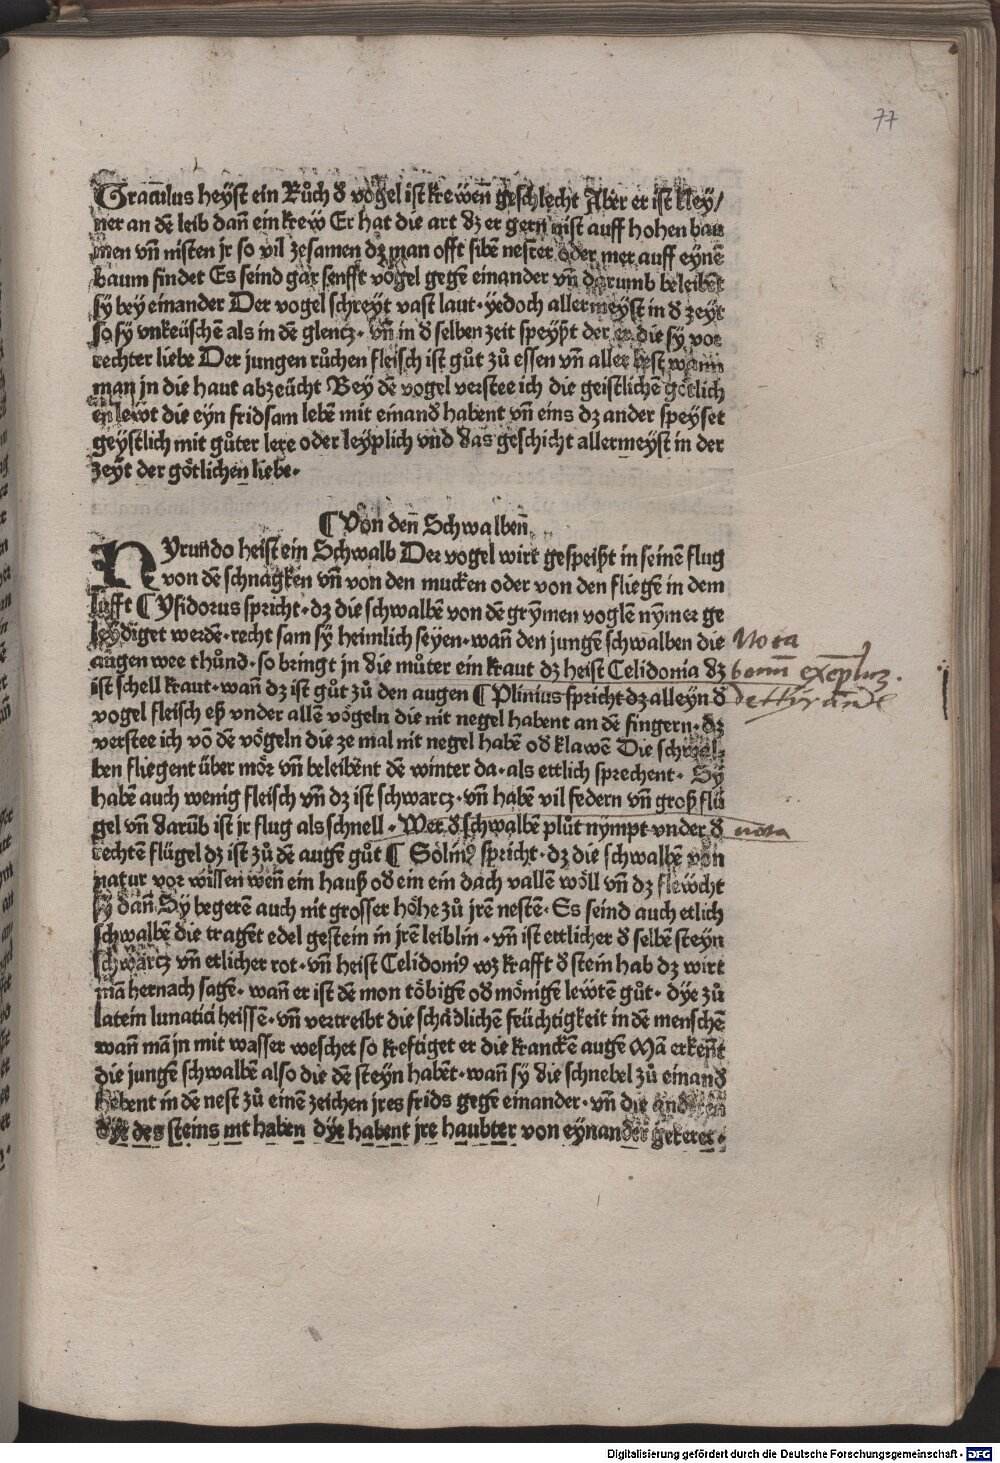 77
Gracculus heyſt ein Růch ď vogel iſt krewen̄ geſchlecht Aber er iſt kley/
ner an dē leib dan̄ ein krew Er hat die art dz er gern niſt auff hohen bau
men vn̄ niſten jr ſo vil zeſamen dz man offt ſibē neſter oder mer auff eynē
baum findet Es ſeind gar ſenfft voͤgel gegē einander vn̄ darumb beleibēt
ſy bey einander Der vogel ſchreyt vaſt laut · yedoch allermeyſt in ď zeyt
ſo ſy vnkeüſchē als in dē glencz · vn̄ in ď ſelben zeit ſpeyßt der er die ſy vor
rechter liebe Der jungen růchen fleiſch iſt gůt zů eſſen vn̄ aller beſt wann
man jn die haut abzeücht Bey dē vogel verſtee ich die geiſtlichē goͤtlich
en lewt die eyn fridſam lebē mit einanď habent vn̄ eins dz ander ſpeyſet
geyſtlich mit gůter lere oder leyplich vnd das geſchicht allermeyſt in der
zeyt der goͤtlichen liebe ·
¶ Von den̄ Schwalben̄
HYrundo heiſt ein Schwalb Der vogel wirt geſpeißt in ſeinē flug
von dē ſchnagken vn̄ von den mucken oder von den fliegē in dem
lufft ¶ Yſidorus ſpricht · dz die ſchwalbē von dē grymen voglē nymer ge
leydiget werdē · recht ſam ſy heimlich ſeyen · wan̄ den jungē ſchwalben die
augen wee thůnd · ſo bringt jn die můter ein kraut dz heiſt Celidonia dz
iſt ſchell kraut · wan̄ dz iſt gůt zů den augen ¶ Plinius ſpricht dz alleyn ď
vogel fleiſch eß vnder allē voͤgeln die nit negel habent an dē fingern · dz
verſtee ich vō dē voͤgeln die ze mal nit negel habē oď klawē Die ſchwal-
ben fliegent über moͤr vn̄ beleibēnt dē winter da · als ettlich ſprechent · Sy
habē auch wenig fleiſch vn̄ dz iſt ſchwarcz · vn̄ habē vil federn vn̄ groß flü
gel vn̄ darūb iſt jr flug als ſchnell · Wer ď ſchwalbē plůt nympt vnder ď
rechtē flügel dz iſt zů dē augē gůt ¶ Solinꝰ ſpricht · dz die ſchwalbē von
natur vor wiſſen wen̄ ein hauß oď ein ein dach vallē woͤll vn̄ dz flewcht
ſy dan̄ Sy begerē auch nit groſſer hoͤhe zů jrē neſtē · Es ſeind auch etlich
ſchwalbē die tragēt edel geſtein in jrē leiblin · vn̄ iſt ettlicher ď ſelbē ſteyn
ſchwarcz vn̄ etlicher rot · vn̄ heiſt Celidoniꝰ wz krafft ď ſtein hab dz wirt
mā hernach ſagē · wan̄ er iſt dē mon toͤbigē oď moͤnigē lewtē gůt · dye zů
latein lunatici heiſſē · vn̄ vertreibt die ſchaͤdlichē feüchtigkeit in dē menſchē
wan̄ mā jn mit waſſer weſchet ſo kreftiget er die kranckē augē Mā erken̄t
die jungē ſchwalbē alſo die dē ſteyn habēt · wan̄ ſy die ſchnebel zů einanď
hebent in dē neſt zů einē zeichen jres frids gegē einander · vn̄ die anderen
dye des ſteins nit haben dye habent jre haubter von eynander gekeret ·
Nota
bonū exēpluʒ.
nota
Digitalisierung gefördert durch die Deutsche Forschungsgemeinschaft - DFG